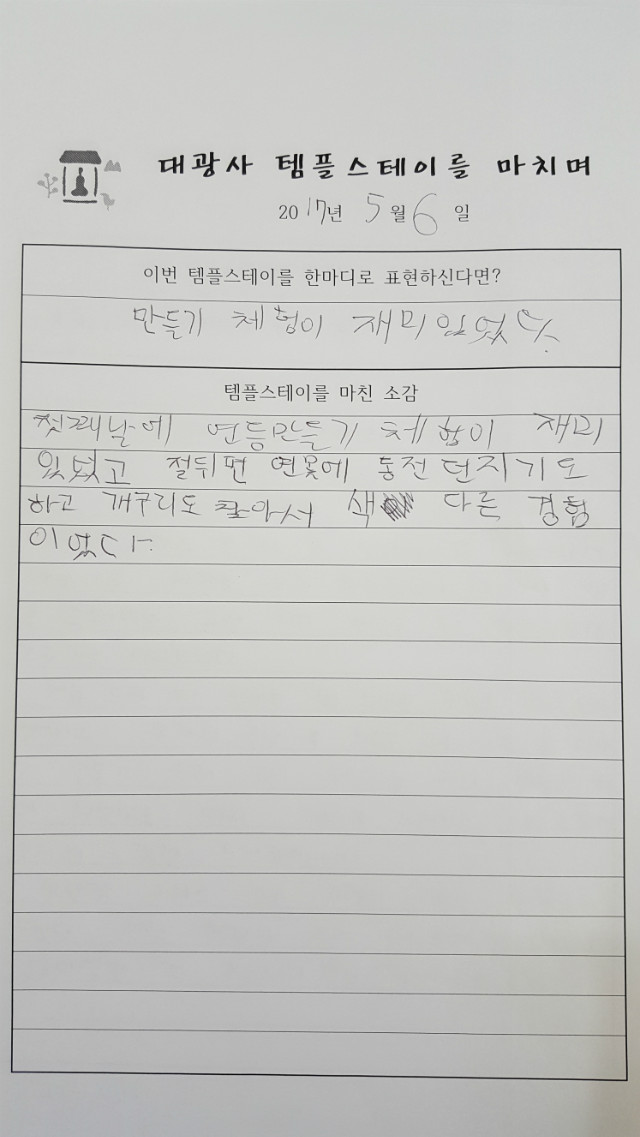 대광사 템플스테이를 마치며
2017년 5월 6일
이번 템플스테이를 한마디로 표현하신다면?
만들기 체험이 재미있었다.
템플스테이를 마친 소감
첫째날에 연등만들기 체험이 재미
있었고 절뒤편 연못에 동전 던지기도
하고 개구리도 찾아서 색 다른 경험
이었다.